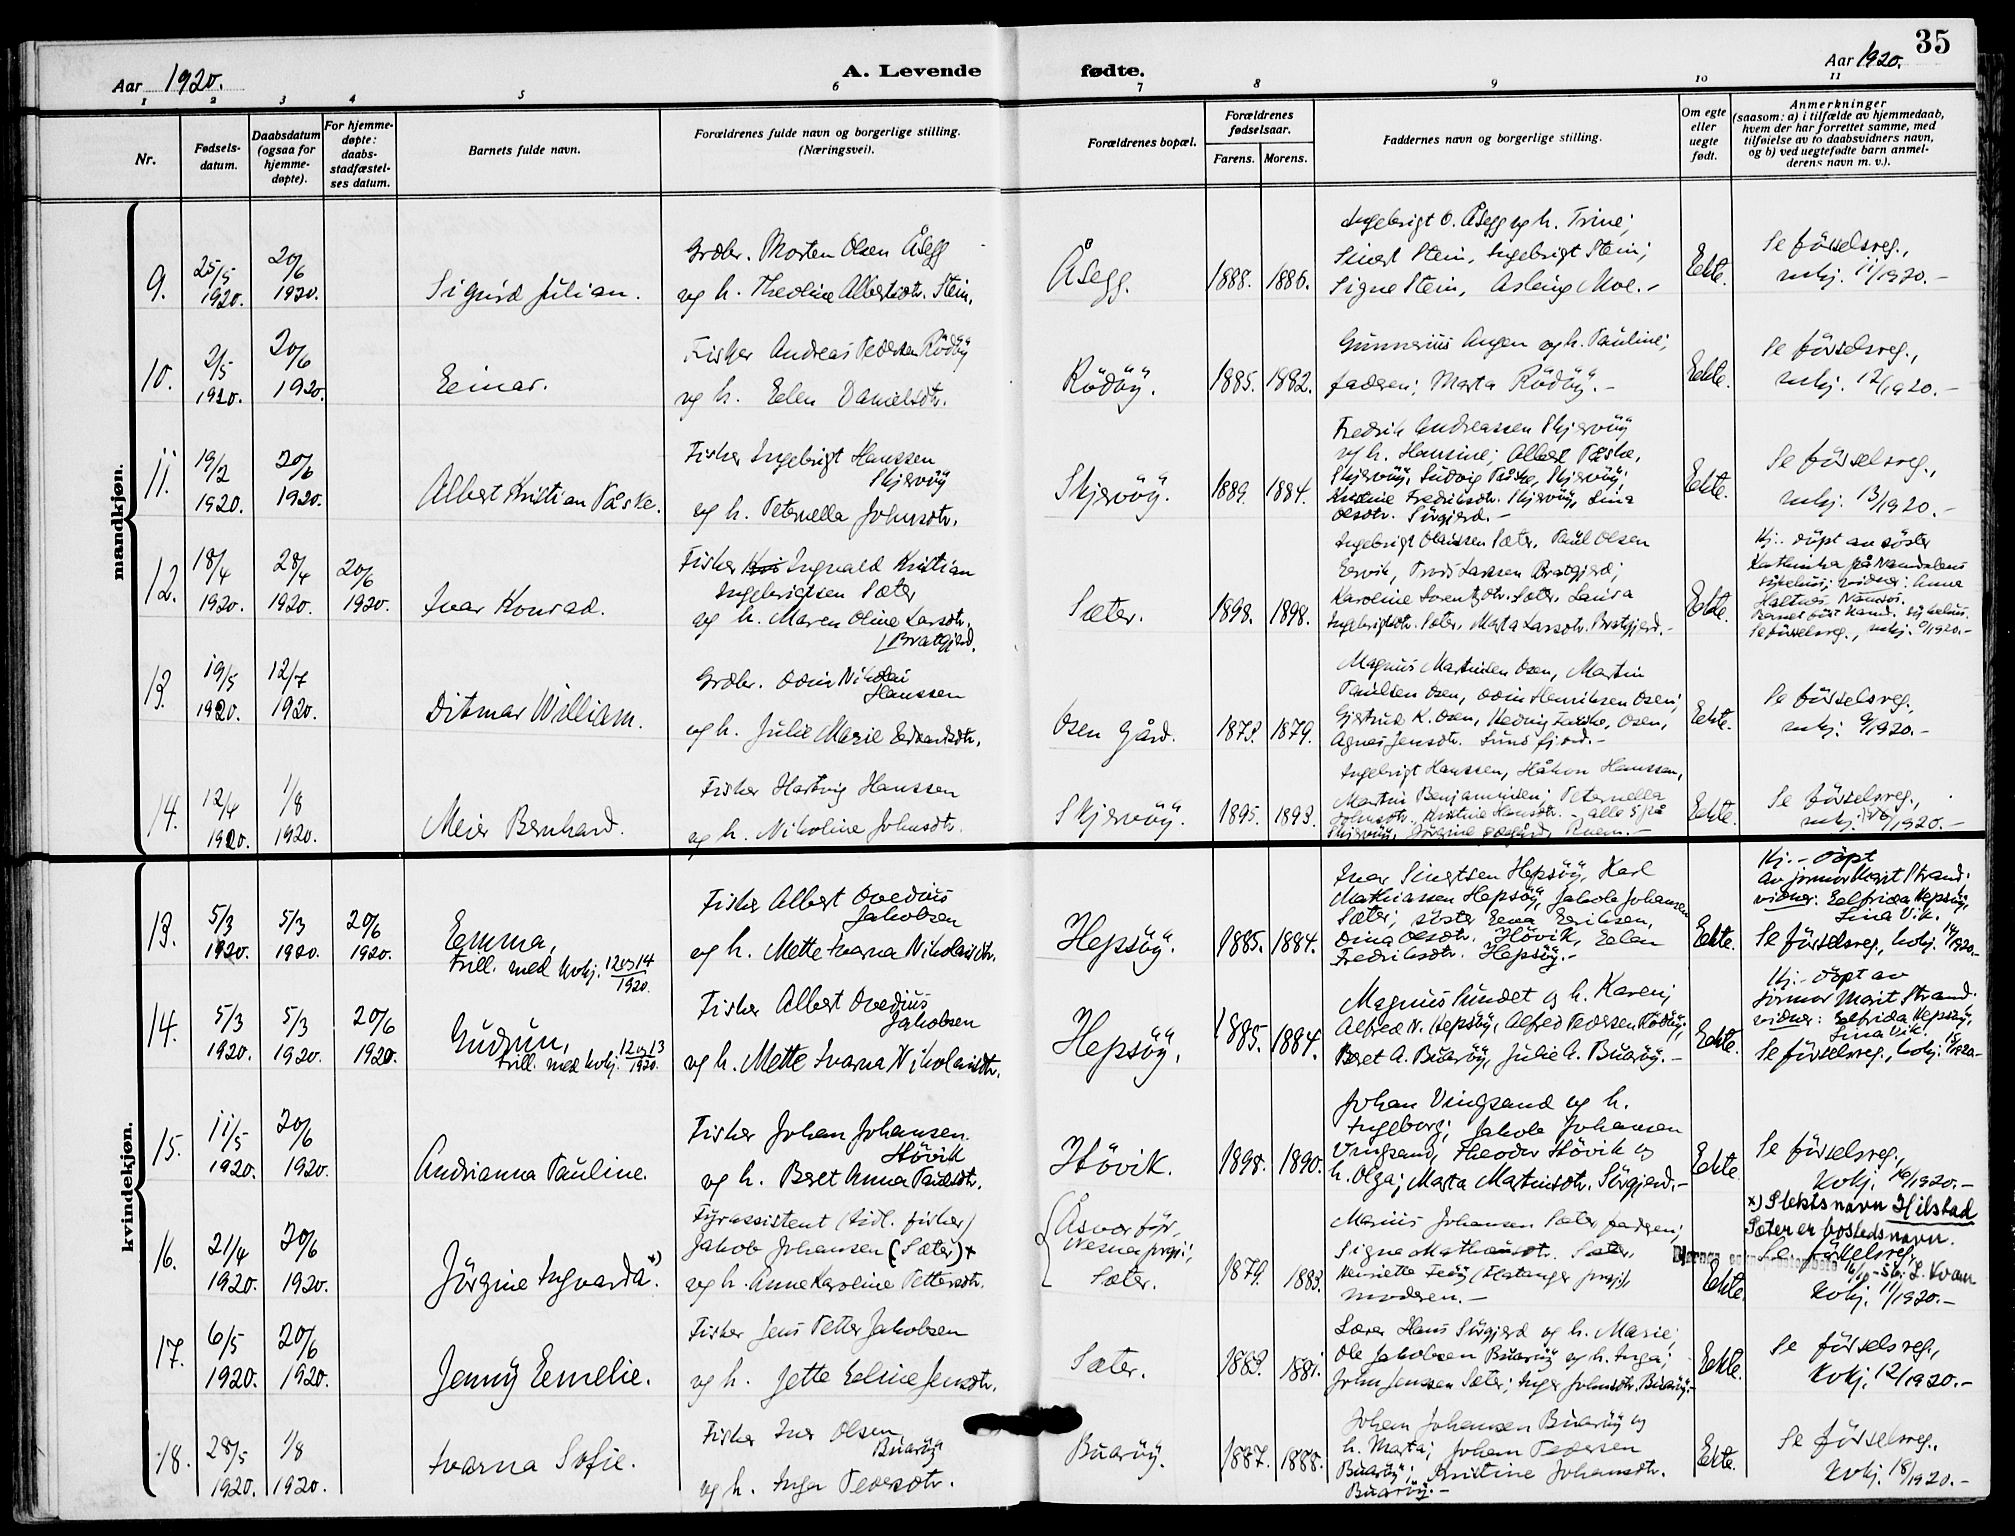 35
Aar 1920.
A. Levende fødte.
Aar 1920.
1 2 3 4 5 6 7 8 9 10 11
Nr.
Fødsels-
datum.
Daabsdatum
(ogsaa for
hjemme-
døpte).
For hjemme-
døpte:
daabs-
stadfæstel-
ses datum.
Barnets fulde navn.
Forældrenes fulde navn og borgerlige stilling.
(Næringsvei).
Forældrenes bopæl.
Forældrenes
fødselsaar.
Farens. Morens.
Faddernes navn og borgerlige stilling.
Om egte
eller
uegte
født.
Anmerkninger
(saasom: a) i tilfælde av hjemmedaab,
hvem der har forrettet samme, med
tilføielse av to daabsvidners navn,
og b) ved uegtefødte barn anmel-
derens navn m. v.).
mandkjøn.
9.
25/5
1920.
20/6
1920.
Sigurd Julian.
Grdbr. Morten Olsen Åsegg
og h. Theoline Albertsdtr. Stein.
Åsegg.
1888. 1886.
Ingebrigt O. Åsegg og h. Trine;
Sivert Stein, Ingebrigt Stein;
Signe Stein, Aslaug Moe.-
Ekte.
Se fødselsreg.,
mkj. 11/1920.-
10.
2/5
1920.
20/6
1920.
Einar.
Fisker Andreas Pedersen Rödöy
og h. Elen Danielsdtr.
Rödöy.
1885. 1882.
Gunnerius Angen og h. Pauline;
faderen; Marta Rödöy.-
Ekte.
Se fødselsreg.,
mkj. 12/1920.-
11.
19/2
1920.
20/6
1920.
Albert Kristian Påske.
Fisker Ingebrigt Hanssen
Skjervöy
og h. Peternella Johnsdtr.
Skjervöy.
1889. 1884.
Fredrik Andreassen Skjervöy
og h. Hansine; Albert Påske,
Skjervöy, Ludvig Påske, Skjervöy;
Kristine Fredriksdtr. Skjervöy, Lina
Olsdtr. Sörgjerd.-
Ekte.
Se fødselsreg.,
mkj. 13/1920.-
12.
18/4
1920.
28/4
1920.
20/6
1920.
Ivar Konrad.
Fisker Ingvald Kristian
Ingebrigtsen Sæter
og h. Maren Oline Larsdtr.
Bratgjerd.
Sæter.
1898. 1898.
Ingebrigt Olaussen Sæter, Paul Olsen
Ervik, Larssen Bratgjerd;
Karoline Lorentzdtr. Sæter, Laura
Ingebrigtsdtr. Sæter, Marta Larsdtr. Bratgjerd.-
Ekte.
Hj.- döpt av söster
Kathinka på Namdalens
sykehus; vidner: Anna
Haltnes, Namsos.
Barnet föt Namd. sykehus.
Se fødselsreg., mkj. /1920.-
13.
19/5
1920.
12/7
1920.
Ditmar William.
Grdbr. Odin Nikolai
Hanssen
og h. Julie Marie Edvardsdtr.
Osen Gård.
1873. 1879.
Magnus Martinsen Osen, Martin
Paulsen Osen, Odin Henriksen Osen;
Gjertrud K. Osen, Hedvig Osen,
Agnes Jensdtr. Sundfjord.-
Ekte.
Se fødselsreg.,
mkj. 9/1920.-
14.
12/4
1920.
1/8
1920.
Meier Bernhard.
Fisker Hartvig Hanssen
og h. Nikoline Johnsdtr.
Skjervöy.
1895. 1893.
Ingebrigt Hanssen, Håkon Hanssen,
Martin Benjaminsen; Peternella
Johnsdtr., Kristine Hansdtr. - alle 5 på
Skjervöy, Jörgine
Ekte.
Se fødselsreg.,
mkj. /1920.-
kvindekjøn.
13.
5/3
1920.
5/3
1920.
20/6
1920.
Emma,
trill. med kvkj. 12 og 14
1920.
Fisker Albert Ovedius
Jakobsen
og h. Mette Ivarna Nikolaisdtr.
Hepsöy.
1885. 1884.
Ivar Sivertsen Hepsöy, Karl
Mathiassen Hepsöy, Jakob Johansen
Sæter; söster Erna Eriksen,
Dina Olsdtr. Hövik, Elen
Fredriksdtr. Hepsöy.-
Ekte.
Hj.- döpt
av jormor Marit Strand.
vidner: Elfrida Hepsöy,
Lina Vik.
Se fødselsreg., kvkj. 14/1920.-
14.
5/3
1920.
5/3
1920.
20/6
1920.
Gudrun,
trill. med kvkj. 12 og 13
1920.
Fisker Albert Ovedius
Jakobsen
og h. Mette Ivarna Nikolaisdtr.
Hepsöy.
1885. 1884.
Magnus Sundet og h. Karen;
Alfred N. Hepsöy, Alfred Pedersen Rödöy;
Beret A. Buaröy, Julie A. Buaröy.-
Ekte.
Hj.- döpt av
jormor Marit Strand.
vidner: Elfrida Hepsöy,
Lina Vik.
Se fødselsreg., kvkj. /1920.-
15.
11/5
1920.
20/6
1920.
Andrianna Pauline.
Fisker Johan Johansen
Hövik
og h. Beret Anna Paulsdtr.
Hövik.
1898. 1890.
Johan Vingsand og h.
Ingeborg; Jakob Johansen
Vingsand, Theodor Hövik og
h. Olga; Marta Martinsdtr. Sörgjerd.-
Ekte.
Se fødselsreg.,
kvkj. 16/1920.-
16.
21/4
1920.
20/6
1920.
Jörgine Ingvarda x)
Fyrassistent (tidl. fisker)
Jakob Johansen (Sæter) x
og h. Anna Karoline Pettersdtr.
Åsvær fyr,
Nesna prgj.,
Sæter.
1879. 1883.
Marius Johansen Sæter, faderen;
Signe Mathæusdtr. Sæter,
Henriette (Flatanger prgj.),
moderen.-
Ekte.
x) Slektsnavn Hilstad
Sæter er bostedsnavn.
Se fødselsreg.,
L. Kvam
kvkj. 11/1920.-
17.
6/5
1920.
20/6
1920.
Jenny Emelie.
Fisker Jens Petter Jakobsen
og h. Jette Eline Jensdtr.
Sæter.
1883. 1881.
Lærer Hans Sörgjerd og h. Marie;
Ole Jakobsen Buaröy og h. Inga;
John Jenssen Sæter; Inger Johnsdtr. Buaröy.-
Ekte.
Se fødselsreg.,
kvkj. 12/1920.-
18.
28/5
1920.
1/8
1920.
Ivarna Sofie.
Fisker Iver Olsen
Buaröy
og h. Inga Pedersdtr.
Buaröy.
1887. 1888.
Johan Johansen Buaröy og
h. Marta; Johan Pedersen
Buaröy; Kristine Johansdtr.
Buaröy.-
Ekte.
Se fødselsreg.,
kvkj. 18/1920.-